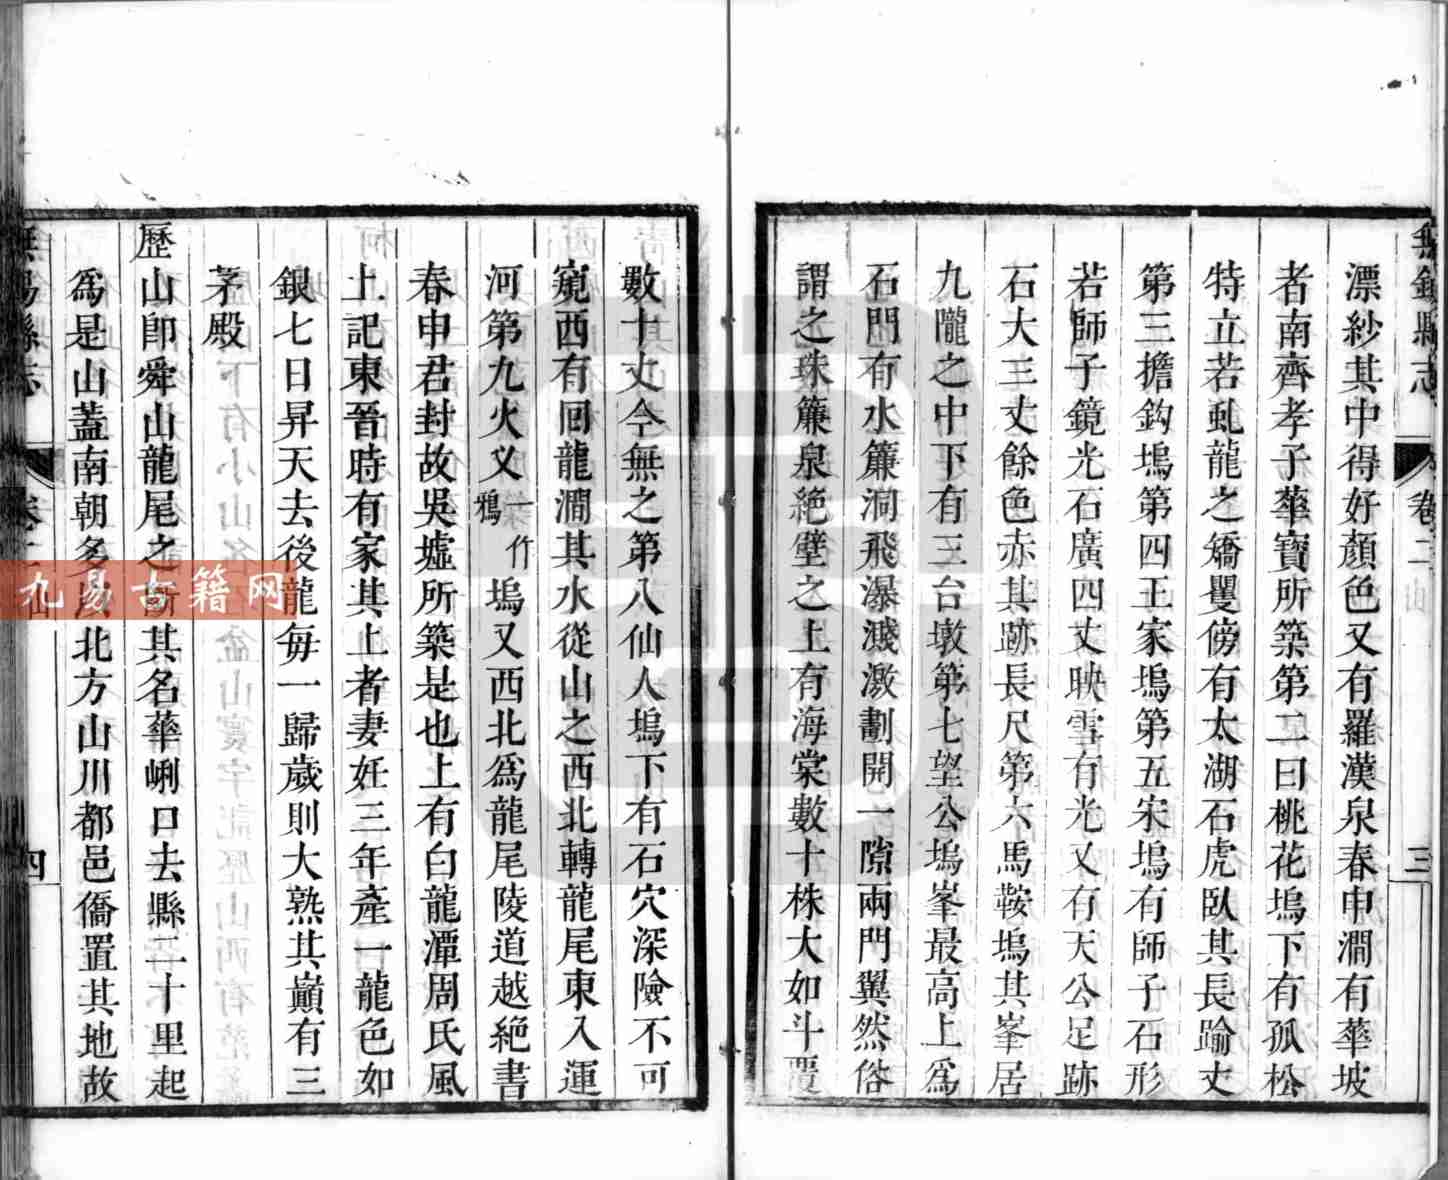 無錫縣志
卷二
山
三
漂紗其中得好顏色又有羅漢泉春申澗有華坡
者南齊孝子華寶所築第二曰桃花塢下有孤松
特立若虬龍之矯矍傍有太湖石虎臥其長踰丈
第三擔鈎塢第四王家塢第五宋塢有師子石形
若師子鏡光石廣四丈映雪有光又有天公足跡
石大三丈餘色赤其跡長尺第六馬鞍塢其峯居
九隴之中下有三台墩第七望公塢峯最高上爲
石門有水簾洞飛瀑濺激劃開一隙兩門翼然俗
謂之珠簾泉絶壁之上有海棠數十株大如斗覆
數十丈今無之第八仙人塢下有石穴深險不可
窺西有囘龍澗其水從山之西北轉龍尾東入運
河第九火又一作鴉竹塢又西北爲龍尾陵道越絶書
春申君封故吳墟所築是也上有白龍潭周氏風
土記東晉時有家其上者妻妊三年產一龍色如
銀七日昇天去後龍每一歸歲則大熟其巔有三
茅殿
歷山卽舜山龍尾之斷其名華峢口去縣二十里起
爲是山蓋南朝多以北方山川都邑僑置其地故
無錫縣志
卷二
山
四
九易古籍网